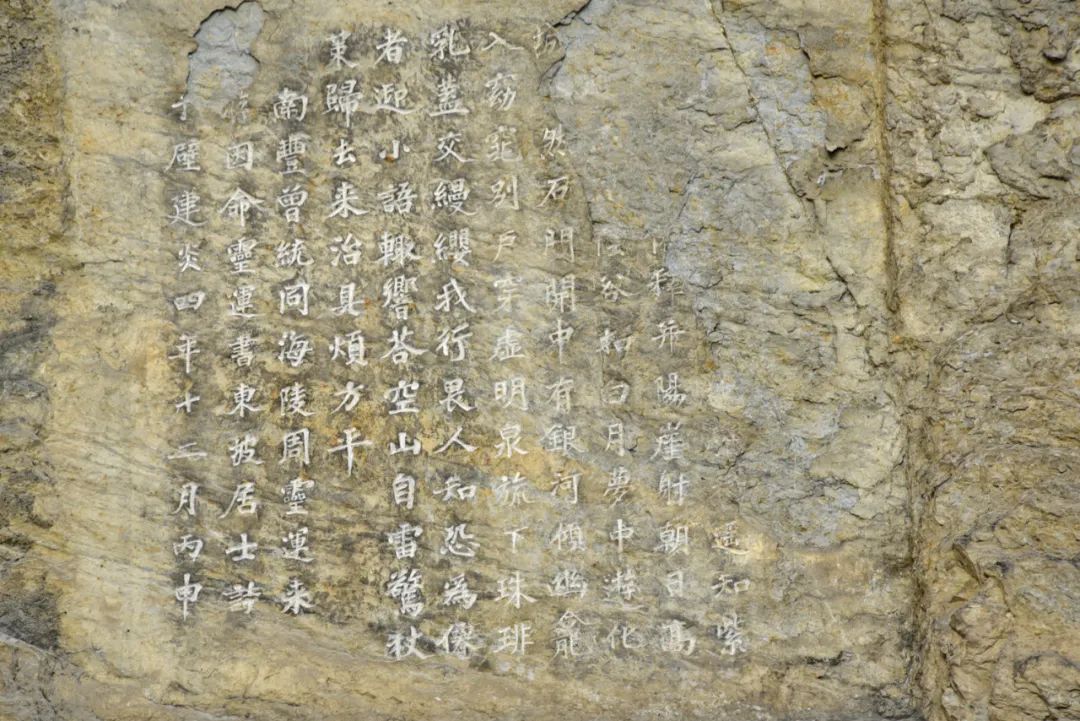 遥知紫
釋并陽崖射朝日高
谷扣白月夢中遊化
然石門開中有銀河傾幽龕
入窈窕別戶穿虛明泉流下珠琲
乳蓋交縵纓我行畏人知恐為僊
者迎小語輙響荅空山自雷驚杖
策歸去来治具煩方平
南豐曾統同海陵周靈運来
游因命靈運書東坡居士詩
于壁建炎四年十二月丙申